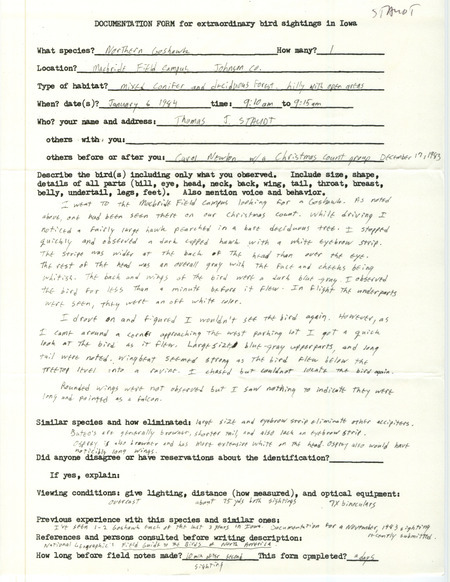 STAUDT
DOCUMENTATION FORM for extraordinary bird sightings in Iowa
What species? Northern Goshawk How many? 1
Location? Macbride Field Campus Johnson Co.
Type of habitat? mixed conifer and decidous forest. hilly with open areas
When? date(s)? January 6 1984 time: 9:10 am to 9:15 am
Who? your name and address: Thomas J. STAUDT
others with you:
others before or after you: Carol Newlon w/a Christmas count group December 17, 1983
Describe the bird(s) including only what you observed. Include size, shape,
details of all parts (bill, eye, head, neck, back, wing, tail, throat, breast,
belly, undertail, legs, feet). Also mention voice and behavior.
I went to the Macbride Field Campus looking for a Goshawk. As noted
above, one had been seen there on our Christmas count. While driving I
noticed a fairly large hawk pearched in a bare decidous tree. I stopped
quickly and observed a dark capped hawk with a white eyebrow strip.
The stripe was wider at the back of the head than over the eye.
The rest of the head was an overall gray with the face and cheeks being
whitish. The back and wings of the bird were a dark blue gray. I observed
the bird for less than a minute before it flew. In flight the underparts
were seen, they were an off white color.
I drove on and figured I wouldn't see the bird again. However, as
I came around a corner approaching the west parking lot I got a quick
look at the bird as it flew. Large size, blue-gray upperparts, and long
tail were noted. Wingbeat seemed strong as the bird flew below the
treetop level into a ravine. I chased but couldn't locate the bird again.
Rounded wings were not observed but I saw nothing to indicate they were
long and pointed as a falcon.
Similar species and how eliminated: large size and eyebrow strip eliminate other accipiters.
Buteo's are generally browner, shorter tail and also lack an eyebrow strip.
Osprey is also browner and has more extensive white on the head. Osprey also would have
noticibly long wings.
Did anyone disagree or have reservations about the identification?
If yes, explain:
Viewing conditions: give lighting, distance (how measured), and optical equipment:
overcast about 75 yds both sightings 7X binoculars
Previous experience with this species and similar ones:
I've seen 1-2 Goshawk each of the last 3 years in Iowa. Documentation for a November, 1983, sighting
recently submitted.
References and persons consulted before writing description:
National Geographic's Field Guide to the Birds of North America
How long before field notes made? 10 min after second This form completed? days
sighting